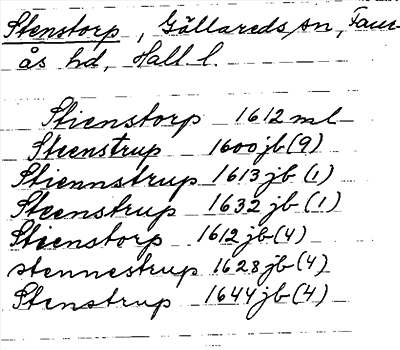 Stenstorp, Gällareds sn, Faur-
ås hd, Hall l.
Stienstorp 1612 ml
Steenstrup 1600 jb (9)
Stiennstrup 1613 jb (1)
Steenstrup 1632 jb (1)
Stienstorp 1612 jb (4)
stennestrup 1628 jb (4)
Stenstrup 1644 jb (4)